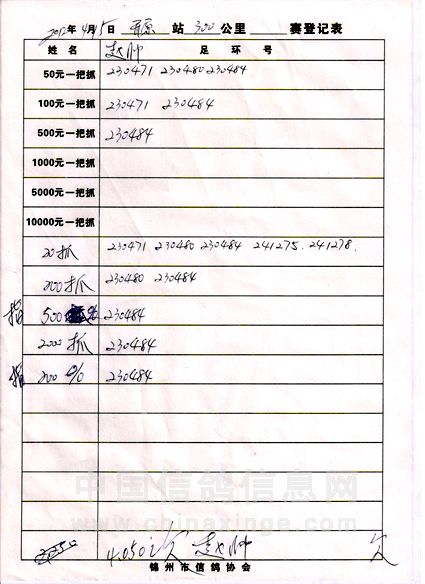 2012年4月15日 开原 站 300 公里 赛登记表
姓名 赵帅 足环号
50元一把抓 230471 230480 230484
100元一把抓 230471 230484
500元一把抓 230484
1000元一把抓
5000元一把抓
10000元一把抓
20抓 230471 230480 230484 241275. 241278.
200抓 230480 230484
指 500 % 230484
2000抓 230484
指 200 % 230484
中国信鸽信息网
www.chinaxinge.com
4.050 欠 赵帅 欠
锦州市信鸽协会